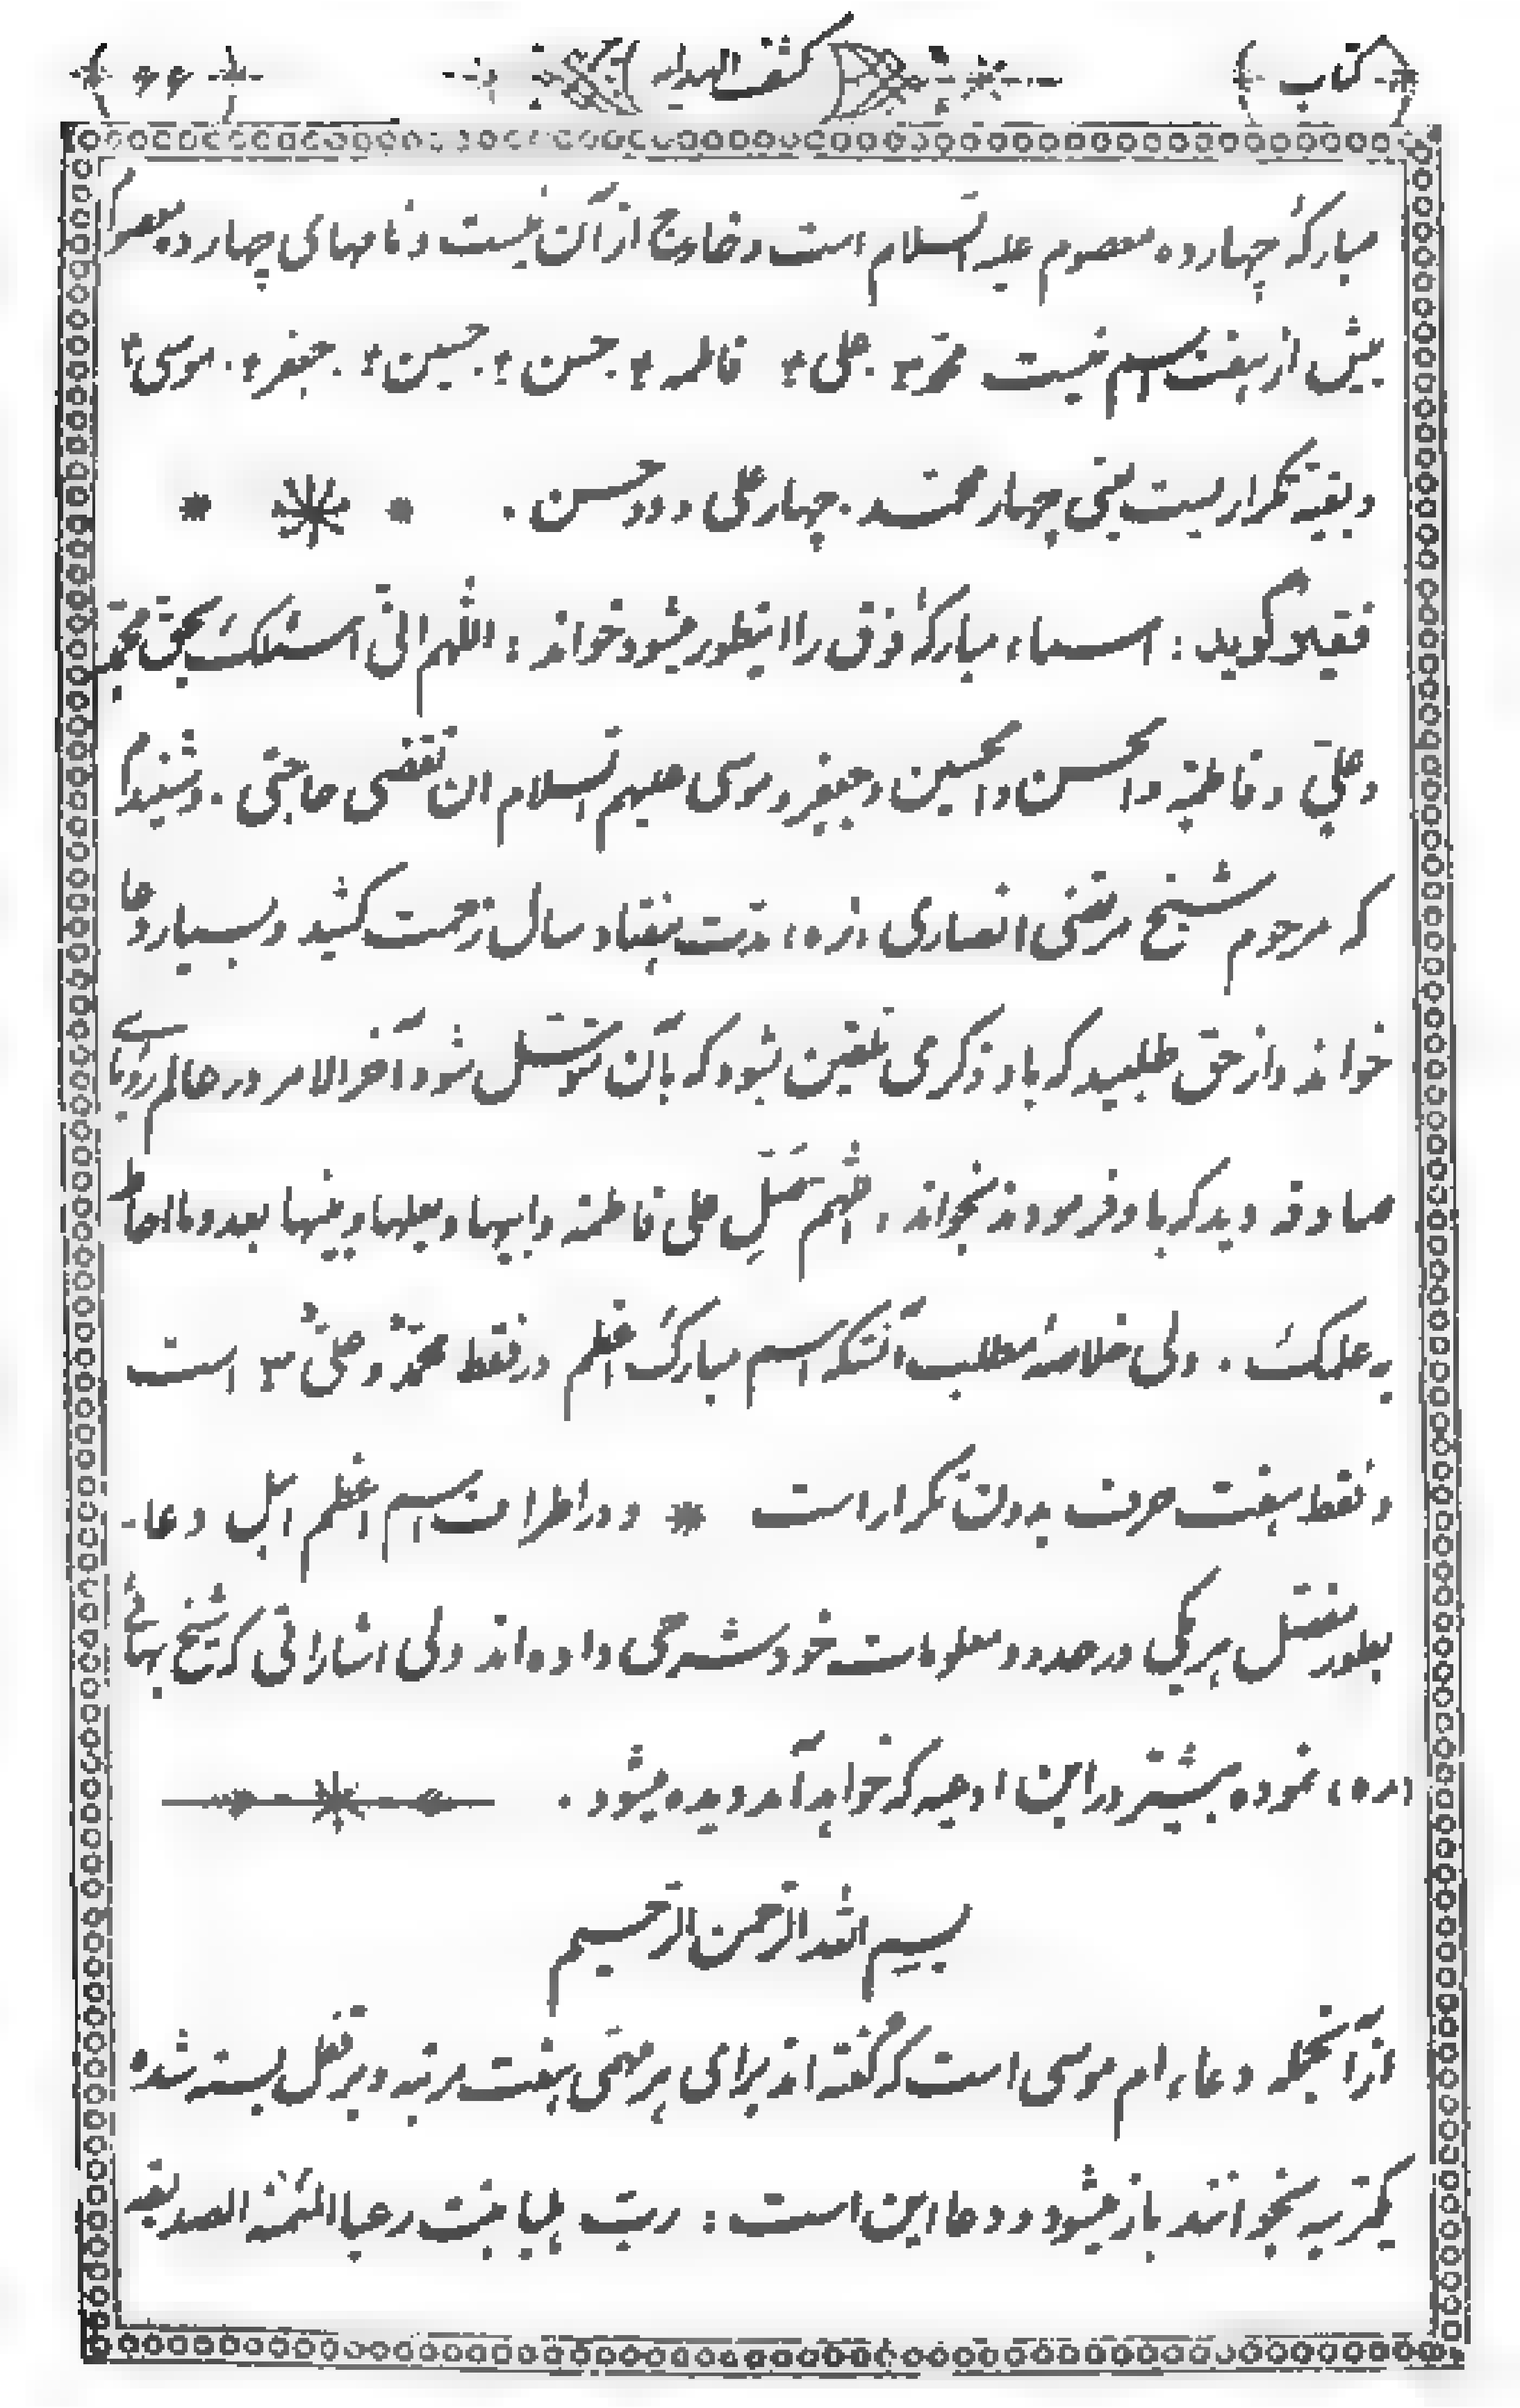 کتاب کشف الهدایه ۶۶
مبارکهٔ چهارده معصوم علیه السلام است و خارج از آن نیست و نامهای چهارده معصوم
بیش از هفت اسم نیست محمد ص . علی ع فاطمه ع . حسن ع . حسین ع . جعفر ع . موسی ع
و بقیه تکراریست یعنی چهار محمد . چهار علی و دو حسن .
فقیر گوید : اسماء مبارکهٔ فوق را اینطور میشود خواند : اللهم انی اسئلک بحق محمد
و علیٍ و فاطمة والحسن والحسین و جعفر و موسی علیهم السلام ان تقضی حاجتی . و شنیدم
که مرحوم شیخ مرتضی انصاری «ره» مدت هفتاد سال زحمت کشید و بسیار دعا
خواند و از حق طلبید که باو ذکری تلقین شود که بآن متوسل شود آخر الامر در عالم رویای
صادقه دید که باو فرمودند بخوان اللهم صَلِ علی فاطمة و ابیها و بعلها و بنیها بعدد ما احاط
به علمک . ولی خلاصهٔ مطلب آنستکه اسم مبارک اعظم در فقط محمدٌ و علیٌ است
و فقط هفت حرف بدون تکرار است * و در اطراف اسم اعظم اهل دعا
بطور مفصل هر یکی در حدود معلومات خود شرحی داده‌اند ولی اشاراتی که شیخ بهائی
«ره» نموده بیشتر در این ادعیه که خواهد آمد دیده میشود .
بسم الله الرحمن الرحیم
از آنجمله دعاء ام موسی است که گفته‌اند برای هر مهمی هفت مرتبه و بر قفل بسته شده
یکمرتبه بخوانند باز میشود و دعا این است : ربّ بنت الصدیقه